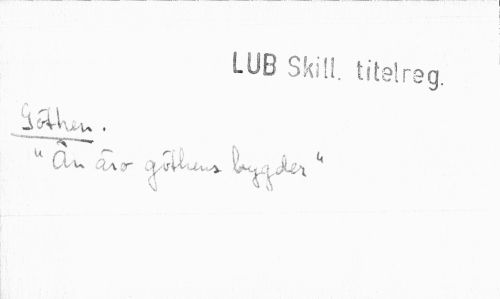 LUB Skill. titelreg.
Göthen.
"Än äro göthens bygder"